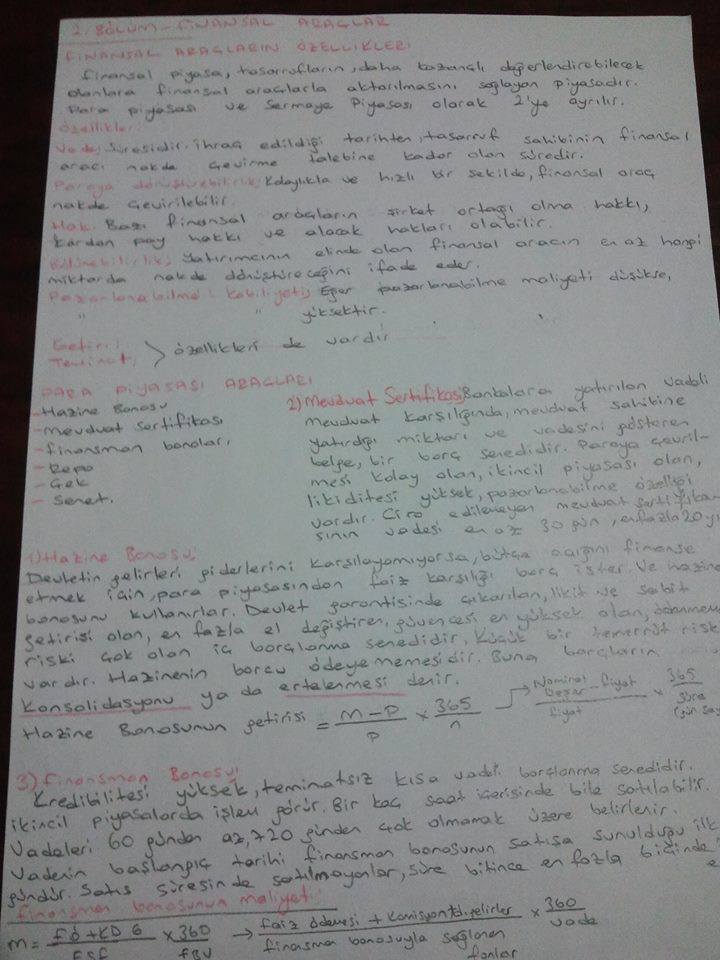 2. BÖLÜM - FİNANSAL ARAÇLAR
FİNANSAL ARAÇLARIN ÖZELLİKLERİ
Finansal piyasa, tasarrufların, daha kazançlı değerlendirebilecek
olanlara finansal araçlarla aktarılmasını sağlayan piyasadır.
Para piyasası ve Sermaye Piyasası olarak 2'ye ayrılır.
Özellikler:
Vade; Süresidir. İhraç edildiği tarihten, tasarruf sahibinin finansal
aracı nakde çevirme talebine kadar olan süredir.
Paraya dönüştürebilirlik; Kolaylıkla ve hızlı bir şekilde, finansal araç
nakde çevirilebilir.
Hak: Bazı finansal araçların şirket ortağı olma hakkı,
kardan pay hakkı ve alacak hakları olabilir.
Bölünebilirlik; Yatırımcının elinde olan finansal aracın en az hangi
miktarda nakde dönüştüreceğini ifade eder.
Pazarlanabilme kabiliyeti; Eğer pazarlanabilme maliyeti düşükse,
" " yüksektir.
Getiri;
Teminat; > özellikleri de vardır
PARA PİYASASI ARAÇLARI
- Hazine Bonosu
- Mevduat Sertifikası
- Finansman bonoları
- Repo
- Çek
- Senet.
2) Mevduat Sertifikası; Bankalara yatırılan vadeli
mevduat karşılığında, mevduat sahibine
yatırdığı miktarı ve vadesini gösteren
belge, bir borç senedidir. Paraya çevril-
mesi kolay olan, ikincil piyasası olan,
likiditesi yüksek, pazarlanabilme özelliği
vardır. Ciro edilemeyen mevduat sertifika-
sının vadesi en az 30 gün, en fazla 20 yı
1) Hazine Bonosu;
Devletin gelirleri giderlerini karşılayamıyorsa, bütçe açığını finanse
etmek için, para piyasasından faiz karşılığı borç ister. Ve hazine
bonosunu kullanırlar. Devlet garantisinde çıkarılan, likit ve sabit
getirisi olan, en fazla el değiştiren, güvencesi en yüksek olan, ödenmeme
riski çok olan iç borçlanma senedidir, Küçük bir temerrüt risk
vardır. Hazinenin borcu ödeyememesidir. Buna borçların
Konsolidasyonu ya da ertelenmesi denir.
Hazine Bonosunun getirisi = M-P / P x 365 / n → Nominal Değer - Fiyat / fiyat x 365 / süre (gün say
3) Finansman Bonosu;
Kredibilitesi yüksek, teminatsız kısa vadeli borçlanma senedidir.
ikincil piyasalarda işlem görür. Bir kaç saat içerisinde bile satılabilir.
Vadeleri 60 günden az, 720 günden çok olmamak üzere belirlenir.
Vadenin başlangıç tarihi finansman bonosunun satışa sunulduğu ilk
gündür. Satış süresinde satılmayanlar, süre bitince en fazla
Finansman bonosunun maliyeti:
m = FÖ + KDG / FSF x 360 / FBV → faiz ödemesi + komisyon + d. gelirler / finasman bonosuyla sağlanan fonlar x 360 / vade